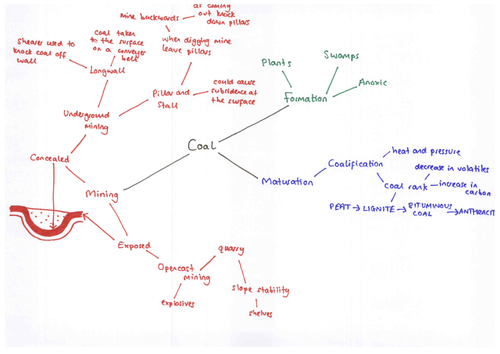 mine backwards
as coming
out knock
down pillars
Shearer used to
knock coal off
wall
coal taken
to the surface
on a conveyer
belt
when digging mine
leave pillars
Longwall
Pillar and
Stall
could cause
subsidence at
the surface
Underground
mining
Concealed
Mining
Exposed
Opencast
mining
explosives
quarry
slope stability
shelves
Coal
Plants
Swamps
Anoxic
Formation
Maturation
Coalification
heat and pressure
decrease in volatiles
Coal rank
increase in
carbon
PEAT → LIGNITE → BITUMINOUS
COAL → ANTHRACIT